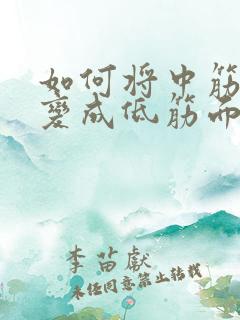 如何将中筋
变成低筋面
李苗献
未经同意禁止转载